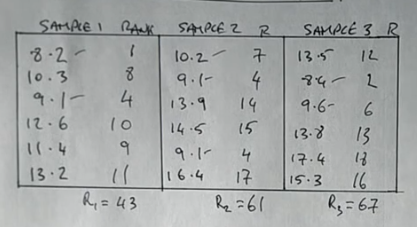 SAMPLE 1 RANK SAMPLE 2 R SAMPLE 3 R
8.2 - 1 10.2 - 7 13.5 12
10.3 8 9.1 - 4 8.4 - 2
9.1 - 4 13.9 14 9.6 - 6
12.6 10 14.5 15 13.8 13
11.4 9 9.1 - 4 17.4 18
13.2 11 16.4 17 15.3 16
R1 = 43 R2 = 61 R3 = 67